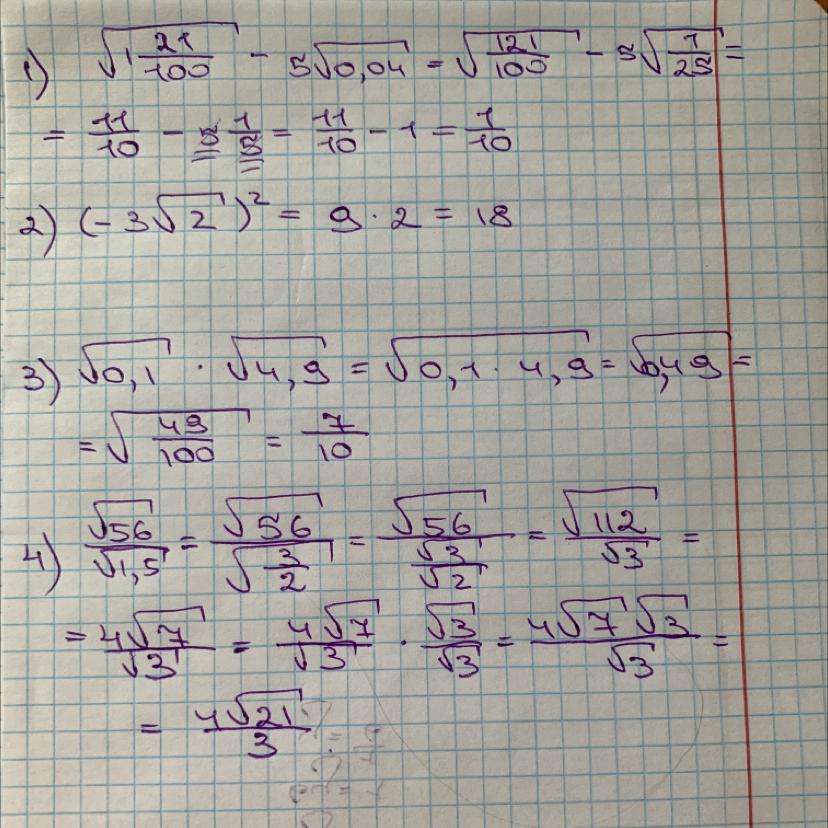 1) √(1 21/100) - 5√0,04 = √(121/100) - 5√(1/25) =
= 11/10 - 5 1/5 = 11/10 - 1 = 1/10
2) (-3√2)² = 9 · 2 = 18
3) √0,1 · √4,9 = √(0,1 · 4,9) = √0,49 =
= √(49/100) = 7/10
4) √56/√1,5 = √56/√(3/2) = √56/(√3/√2) = √112/√3 =
= 4√7/√3 = 4√7/√3 · √3/√3 = 4√7√3/√3 =
= 4√21/3